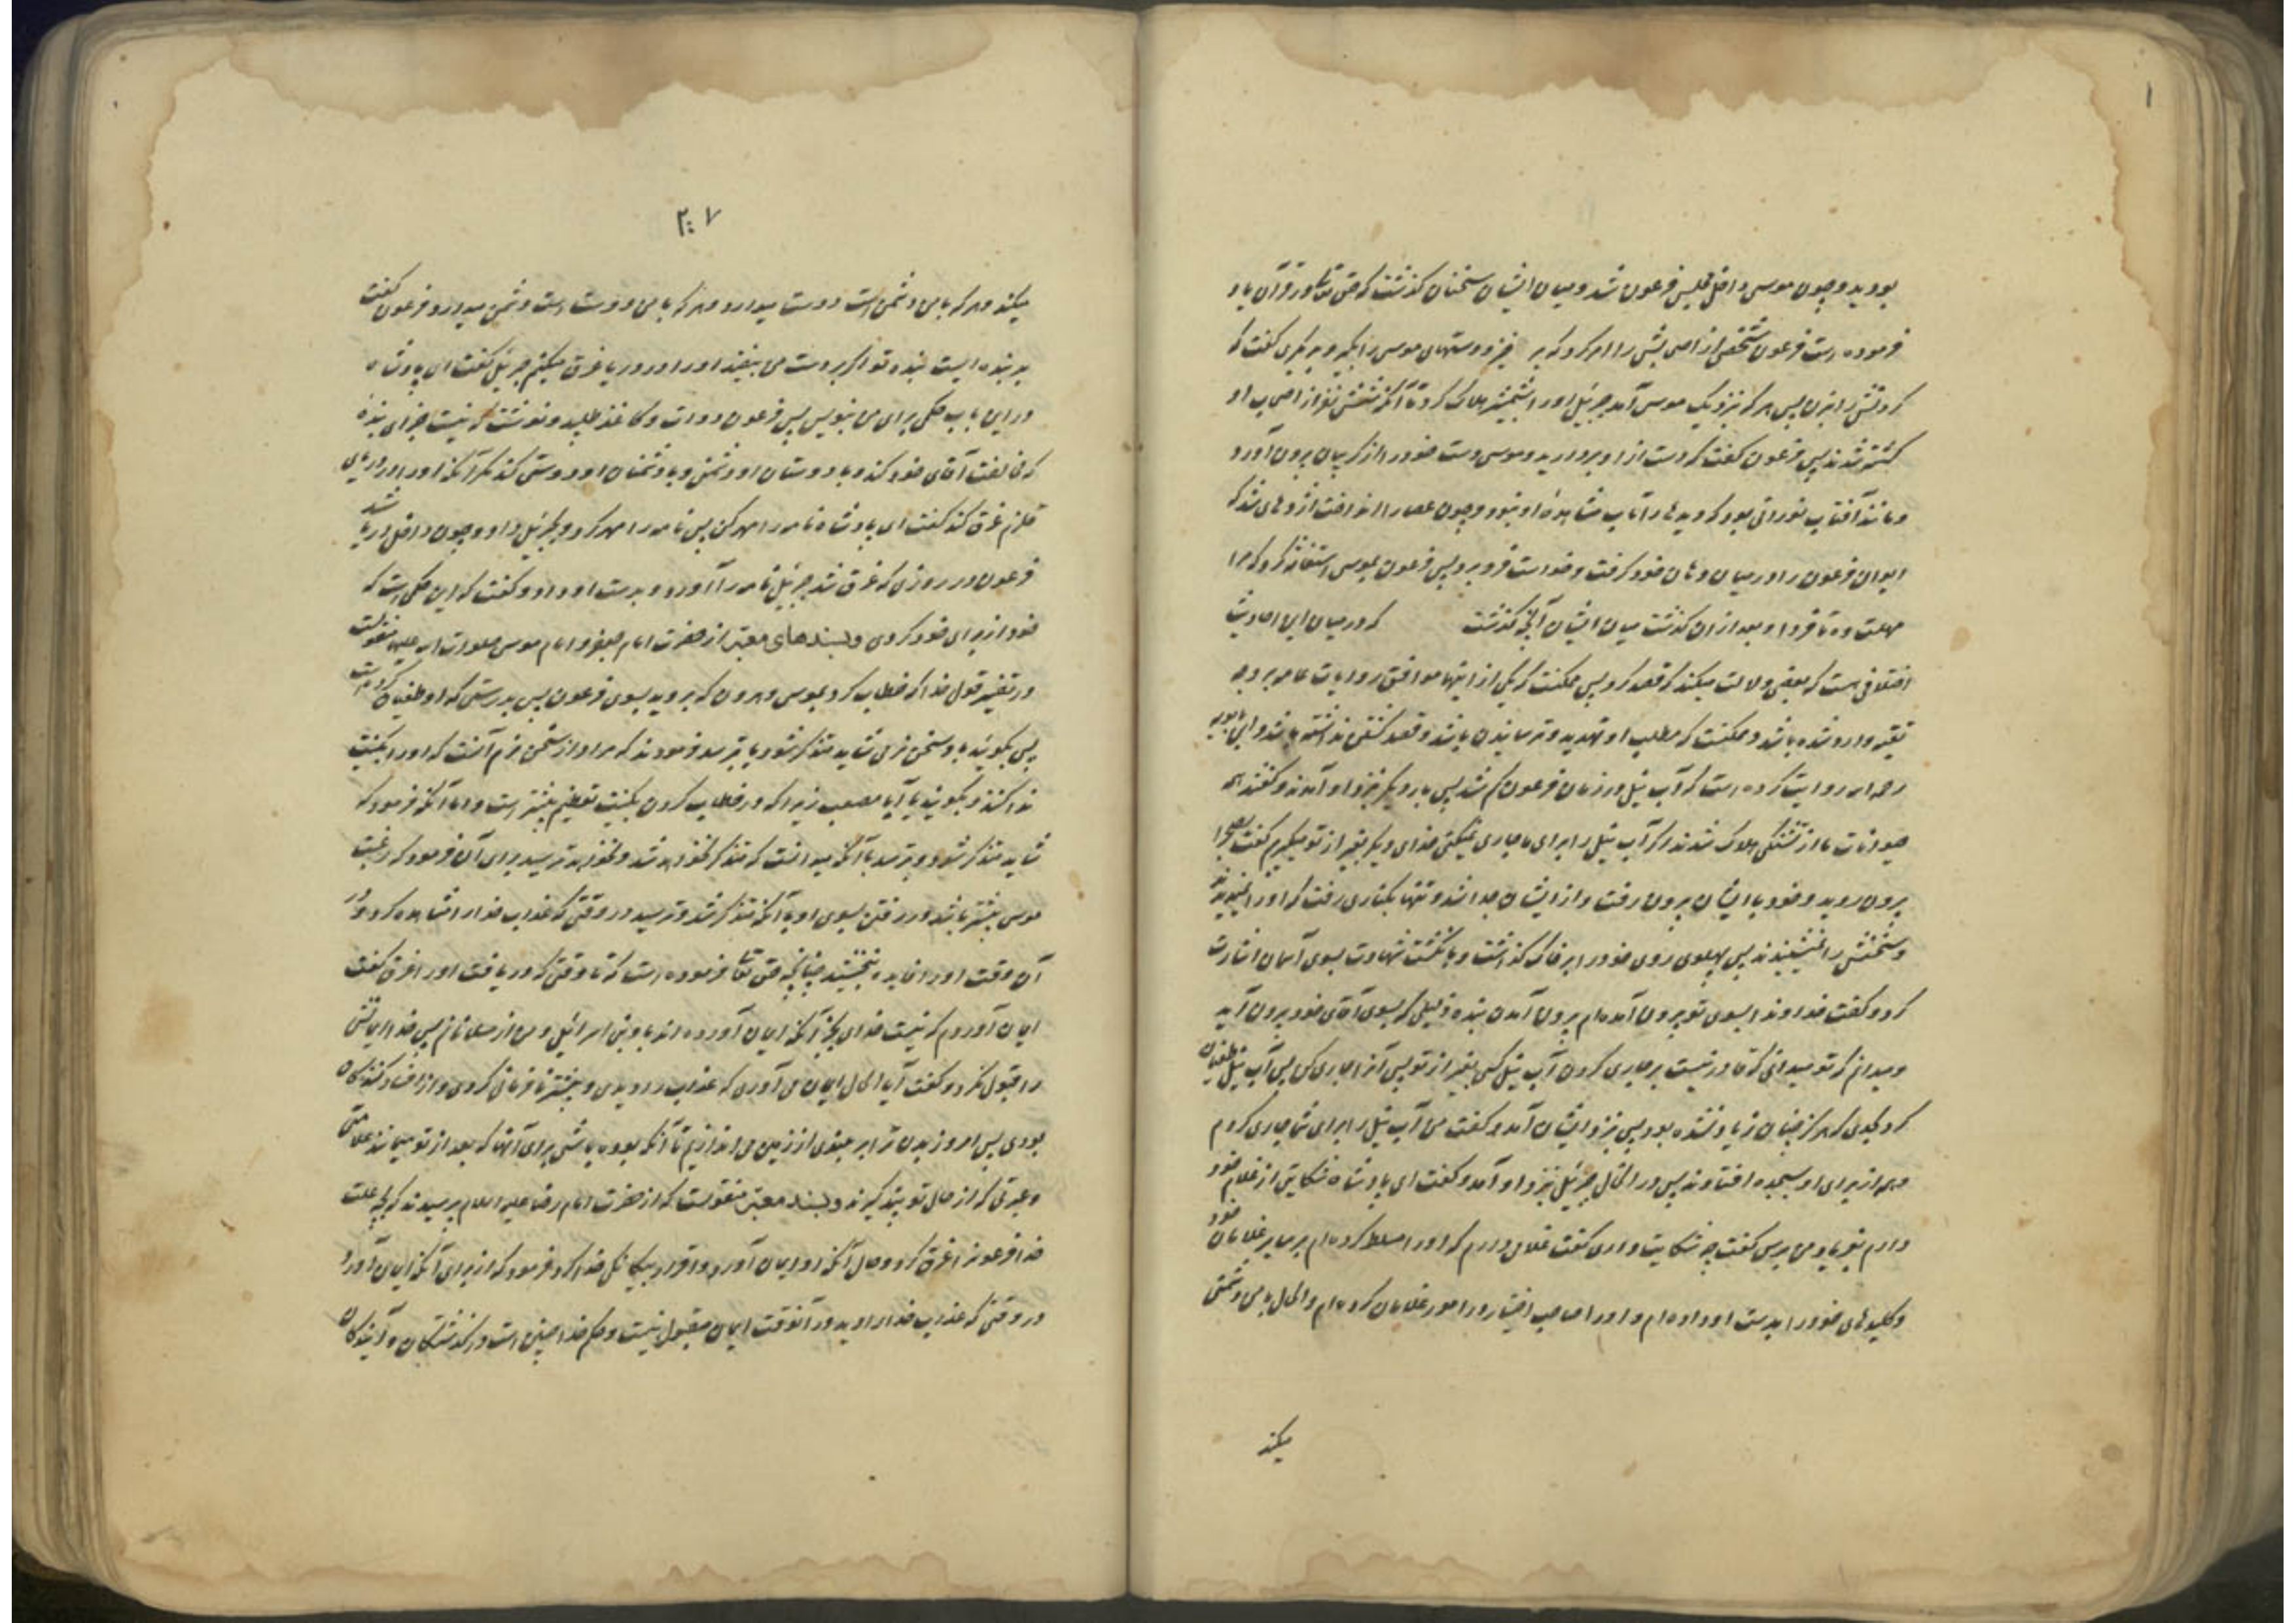 بودید و چون موسی داخل مجلس فرعون شد و میان ایشان سخنان گذشت که حق تعالی در قرآن یاد
فرموده است فرعون شخصی از اصحابش را امر کرد که بر خیز و دستهای موسی را بگیر و بدیگری گفت که
گردنش را بزن پس هر که نزدیک موسی آمد جبرئیل او را بشمشیر هلاک کرد تا آنکه شش نفر از اصحاب او
کشته شدند پس فرعون گفت که دست از او بردارید و موسی دست خود را از گریبان بیرون آورد
و مانند آفتاب نورانی بود که دیدها را تاب مشاهدهٔ او نبود و چون عصا را انداخت اژدهای شد که
ایوان فرعون را در میان دهان خود گرفت و خواست فرو برد پس فرعون بموسی استغاثه کرد که مرا
مهلت ده تا فردا و بعد از آن گذشت میان ایشان آنچه گذشت که در میان این احادیث
اختلافی هست که بعضی دلالت میکند که قصد کرد پس ممکنست که یکی از اینها موافق روایات عامه بر وجه
تقیه وارد شده باشد و ممکنست که مطلب او تهدید و ترسانیدن باشد و قصد کشتن نداشته باشد و ابن بابویه
رحمه الله روایت کرده است که آب نیل در زمان فرعون کم شد پس بار دیگر نزد او آمدند و گفتند همه
حیوانات ما از تشنگی هلاک شدند اگر آب نیل را برای ما جاری نمیکنی خدای دیگر بغیر از تو میگیریم گفت بصحرا
بیرون روید و خود با ایشان بیرون رفت و از ایشان جدا شد و تنها بکناری رفت که او را نمیدیدند
و سخنش را نمیشنیدند پس پهلوی روی خود را بر خاک گذاشت و بانگشت شهادت بسوی آسمان اشارت
کرد و گفت خداوندا بسوی تو بیرون آمده‌ام بیرون آمدن بنده ذلیلی که بسوی آقای خود بیرون آید
و میدانم که تو میدانی که قادر نیست بر جاری کردن آب نیل کسی بغیر از تو پس آنرا جاری کن پس آب نیل طغیان
کرد بحدی که هرگز چنان زیاد نشده بود پس نزد ایشان آمد و گفت من آب نیل را برای شما جاری کردم
و همه از برای او بسجده افتادند پس در انحال جبرئیل نزد او آمد و گفت ای پادشاه شکایتی از غلام خود
دارم بفریاد من برس گفت چه شکایت داری گفت غلامی دارم که او را مسلط کرده‌ام بر سایر غلامان خود
و کلیدهای خود را بدست او داده‌ام و او را صاحب اختیار در امور غلامان کرده‌ام و الحال با من دشمنی
میکند
۲۰۷
میکند و هر که با من دشمن است دوست میدارد و هر که با من دوست است دشمن میدارد فرعون گفت
بد بنده ایست بنده تو اگر بدست من بیفتد او را در دریا غرق میکنم جبرئیل گفت ای پادشاه
در این باب حکمی برای من بنویس پس فرعون دوات و کاغذ طلبید و نوشت که نیست جزای بندهٔ
که مخالفت آقای خود کند و با دوستان او دشمنی و با دشمنان او دوستی کند مگر آنکه او را در دریای
قلزم غرق کند گفت ای پادشاه نامه را مهر کن پس نامه را مهر کرد و بجبرئیل داد و چون داخل دریا شد
فرعون در روزی که غرق شد جبرئیل نامه را آورد و بدست او داد و گفت که این حکمی است که
خود از برای خود کردی و بسندهای معتبر از حضرت امام جعفر و امام موسی صلوات الله علیهما منقولست
در تفسیر قول خدا که خطاب کرد بموسی و هرون که بروید بسوی فرعون پس بدرستی که او طغیان کرده است
پس بگوئید باو سخن نرمی شاید متذکر شود یا بترسد فرمودند که مراد از سخن نرم آنست که او را بکنیت
ندا کنند و بگویند یا ابا مصعب زیرا که در خطاب کردن بکنیت تعظیم بیشتر است و اما آنکه فرمود که
شاید متذکر شود و بترسد با آنکه میدانست که متذکر نخواهد شد و نخواهد ترسید برای آن فرمود که رغبت
موسی بیشتر باشد در رفتن بسوی او با آنکه متذکر شد و ترسید در وقتی که عذاب خدا را مشاهده کرد و در
آن وقت او را فایده نبخشید چنانچه حق تعالی فرموده است که تا وقتی که دریافت او را غرق گفت
ایمان آوردم که نیست خدای بجز آنکه ایمان آورده اند باو بنی اسرائیل و من از مسلمانانم پس خدا ایمانش
را قبول نکرد و گفت آیا الحال ایمان می آوری که عذاب را دیدی و پیشتر نافرمانی کردی و از افساد کنندگان
بودی پس امروز بدن ترا بر بلندی از زمین می اندازیم تا آنکه بوده باشی برای آنها که بعد از تو میمانند علامتی
و عبرتی که از حال تو پند گیرند و بسند معتبر منقولست که از حضرت امام رضا علیه السلام پرسیدند که بچه علت
خدا فرعونرا غرق کرد و حال آنکه او ایمان آورد و اقرار بیگانگی خدا کرد فرمود که از برای آنکه ایمان آورد
در وقتی که عذاب خدا را دید و در آنوقت ایمان مقبول نیست و حکم خدا چنین است در گذشتگان و آیندگان